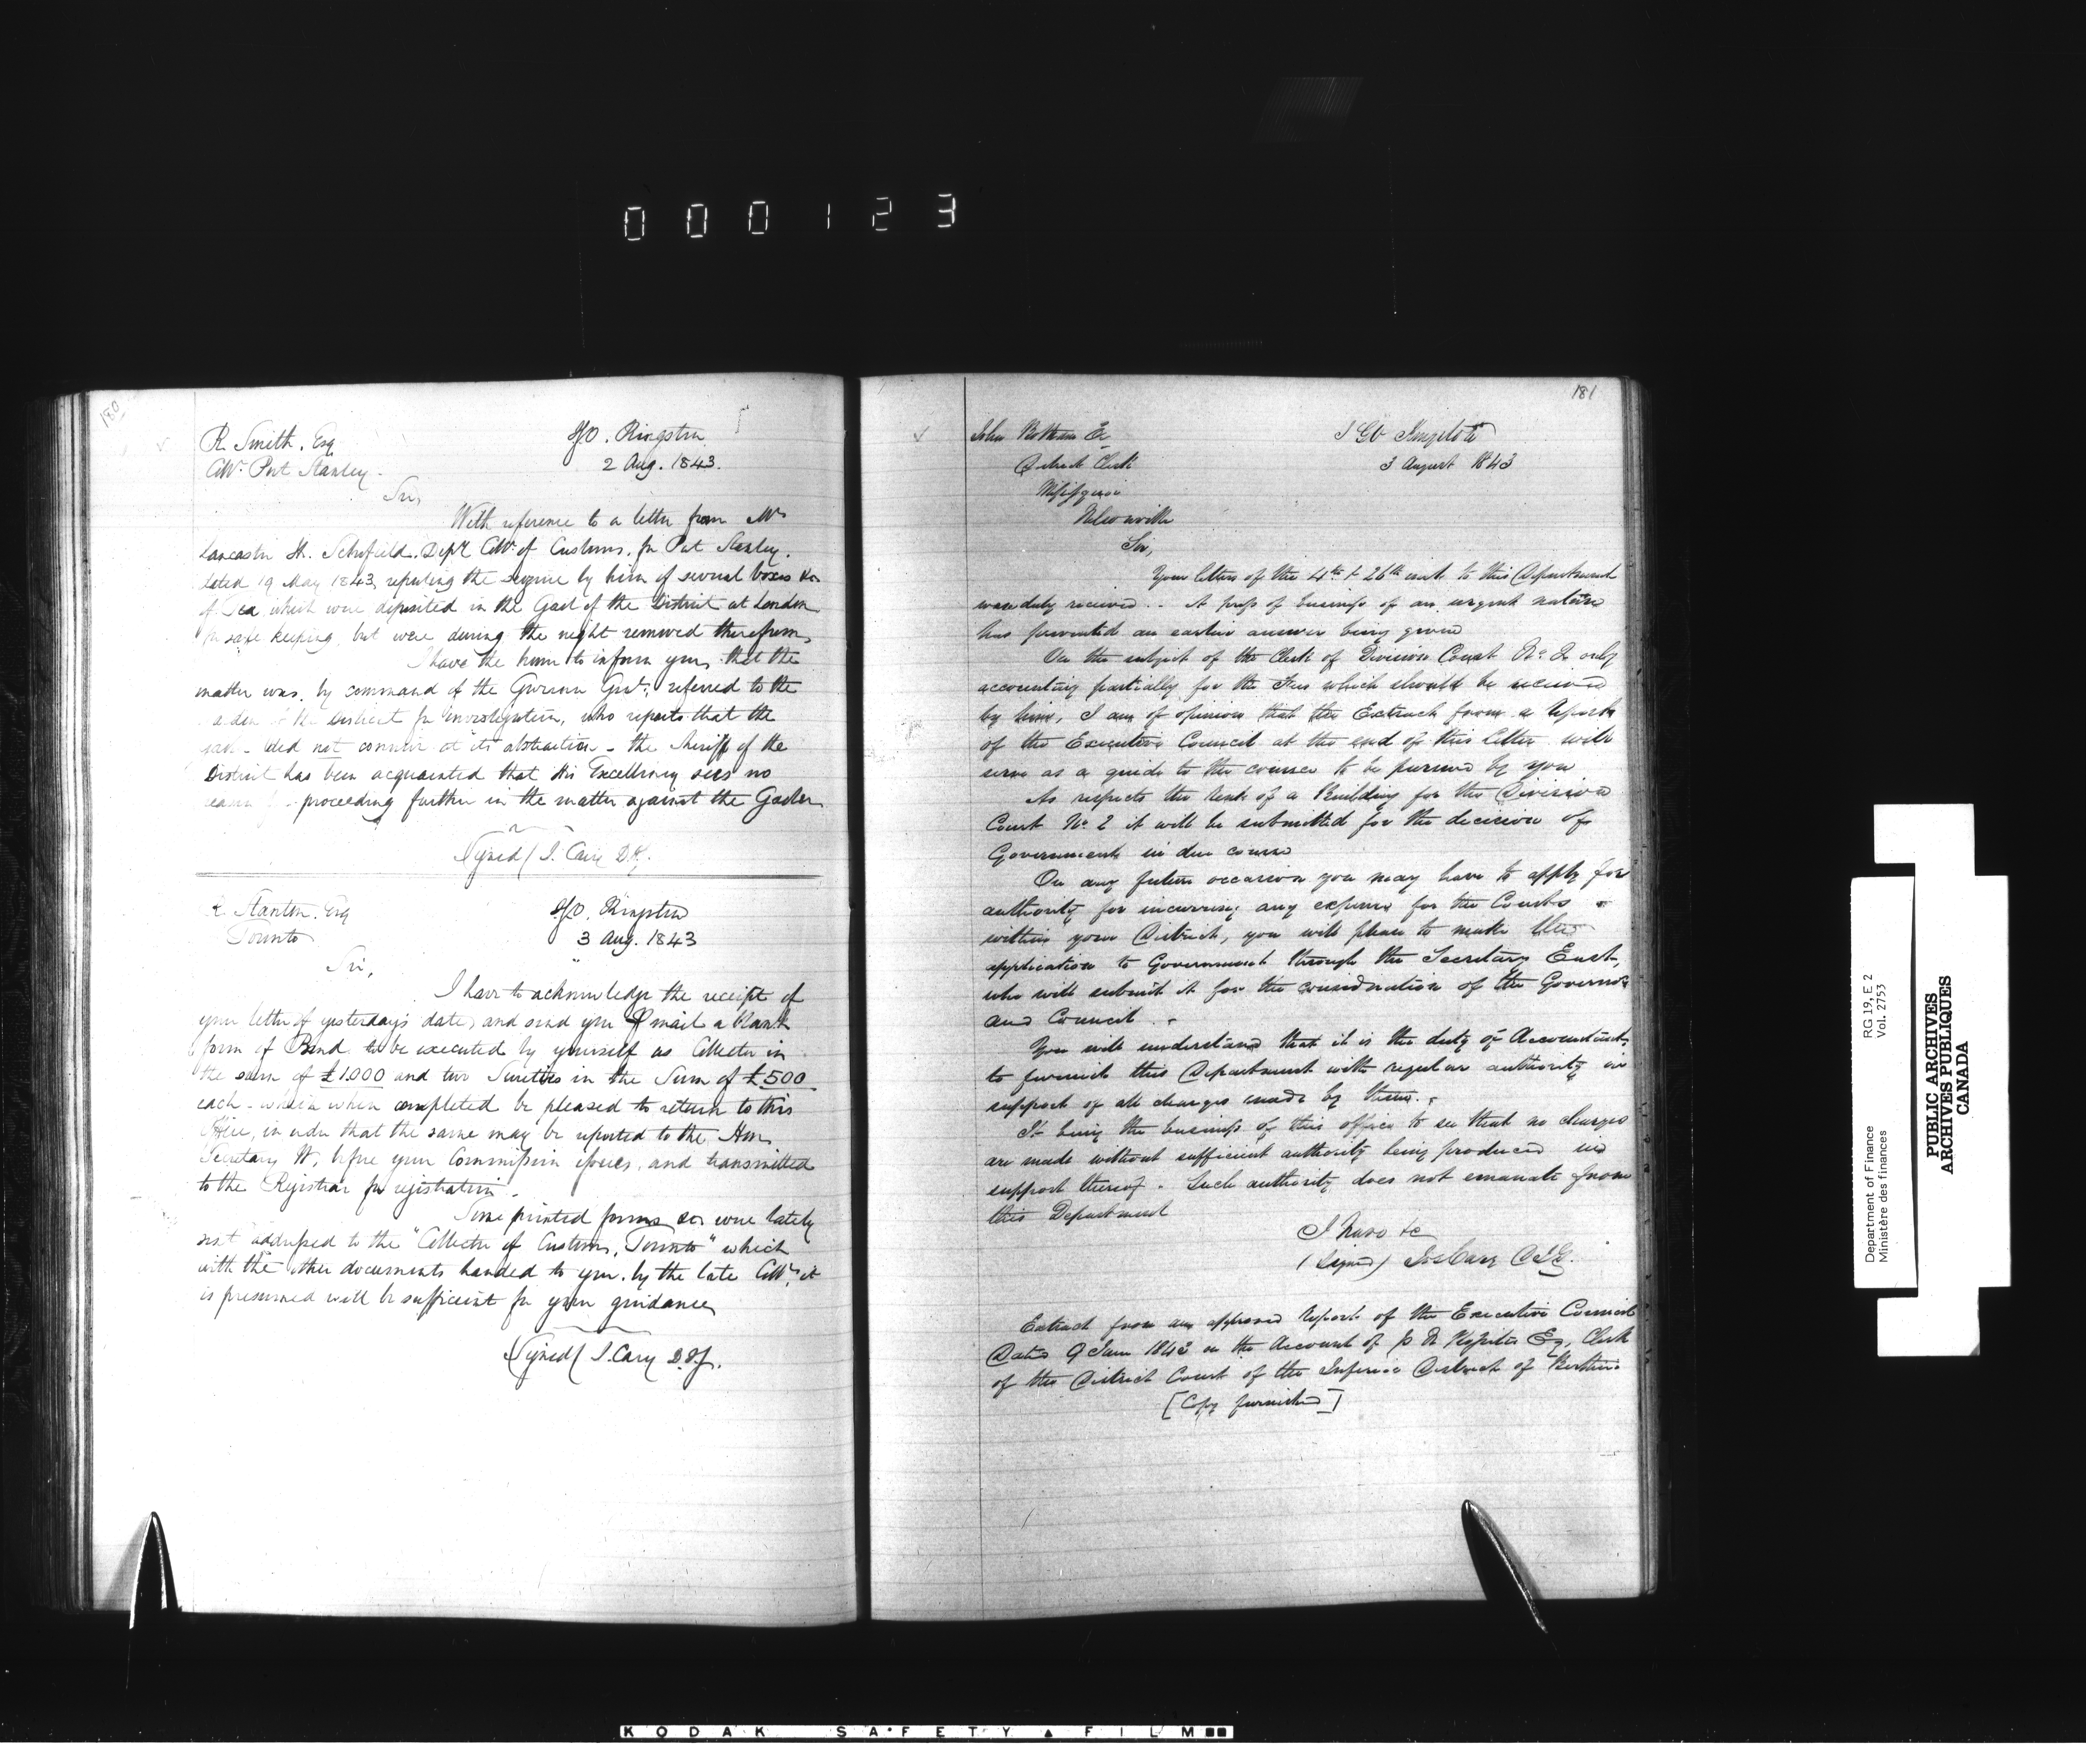 000123
180
R. Smith. Esq
Collr. Port Stanley.
I.G.O. Kingston
2 Aug. 1843.
Sir,
With reference to a letter from Mr
Lancaster H. Schofield. Depy Collr. of Customs. for Port Stanley.
dated 19 May 1843, reporting the seizure by him of several boxes &c
of Tea which were deposited in the Gaol of the District at London
for safe keeping, but were during the night removed therefrom,
I have the honor to inform you, that the
matter was, by command of the Governor Genl. referred to the
of the District for investigation, who reports that the
did not connive at its abstraction - the Sheriff of the
District has been acquainted that His Excellency sees no
proceeding further in the matter against the Gaoler
Signed/ J. Cary D.I.G.
R. Stanton. Esq
Toronto
I.G.O. Kingston
3 Aug. 1843
Sir,
I have to acknowledge the receipt of
your letter of yesterday's date, and send you P mail a blank
form of Bond to be executed by yourself as Collector in
the sum of £1000 and two Sureties in the Sum of £500
each - which when completed be pleased to return to this
Office, in order that the same may be reported to the Hon
Secretary W, before your Commission issues, and transmitted
to the Registrar for registration.
Some printed forms &c were lately
sent addressed to the "Collector of Customs, Toronto" which
with the other documents handed to you, by the late Collr. it
is presumed will be sufficient for your guidance
Signed/ J. Cary D.I.G.
181
John Botham Er
District Clerk
Missisquoi
Nelsonville
I G O Kingston
3 August 1843
Sir,
Your letters of the 4th & 26th to this Department
were duly received.. A press of business of an urgent nature
has prevented an earlier answer being given
On the subject of the Clerk of Division Court No. 2 only
accounting partially for the Fees which should be received
by him, I am of opinion that the Extract from a Report
of the Executive Council at the end of this letter will
serve as a guide to the course to be pursued by you
As respects the Rent of a Building for the Division
Court No. 2 it will be submitted for the decision of
Government in due course
On any future occasion you may have to apply for
authority for incurring any expense for the Courts
within your District, you will please to make the
application to Government through the Secretary East,
who will submit it for the consideration of the Governor
and Council.
You will understand that it is the duty of Accountants
to furnish this Department with regular authority in
support of all charges made by them.
It being the business of this office to see that no charges
are made without sufficient authority being produced in
support thereof. Such authority does not emanate from
this Department
I have &c
(Signed) Jos Cary D I G.
Extract from an approved Report of the Executive Council
Dated 9 June 1843 on the Account of Esq, Clerk
of the District Court of the Inferior District of Berthier
[Copy furnished]
Department of Finance RG 19, E 2
Ministère des finances Vol. 2753
PUBLIC ARCHIVES
ARCHIVES PUBLIQUES
CANADA
KODAK SAFETY FILM